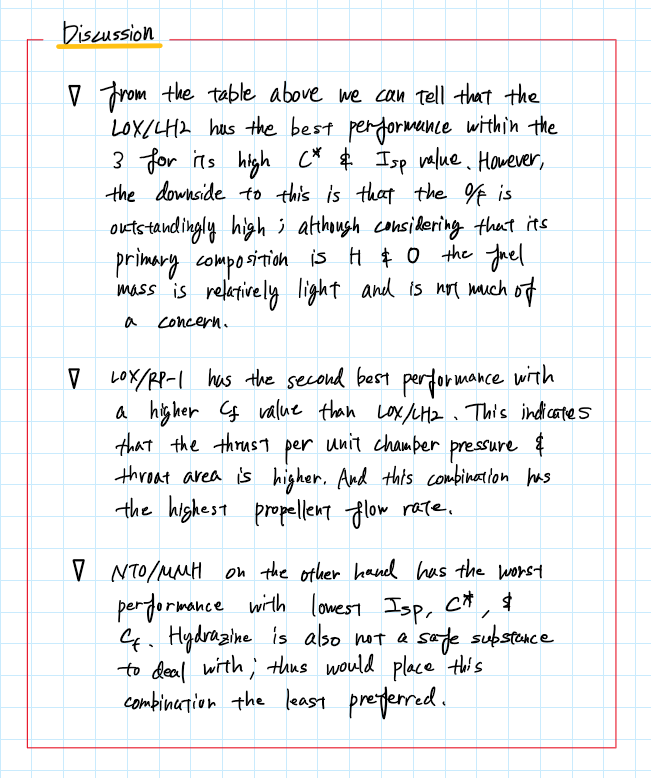 Discussion
▽ From the table above we can tell that the
LOX/LH2 has the best performance within the
3 for its high C* & Isp value. However,
the downside to this is that the O/F is
outstandingly high ; although considering that its
primary composition is H & O the fuel
mass is relatively light and is not much of
a concern.
▽ LOX/RP-1 has the second best performance with
a higher Cf value than LOX/LH2. This indicates
that the thrust per unit chamber pressure &
throat area is higher. And this combination has
the highest propellent flow rate.
▽ NTO/MMH on the other hand has the worst
performance with lowest Isp, C*, &
Cf. Hydrazine is also not a safe substance
to deal with; thus would place this
combination the least preferred.